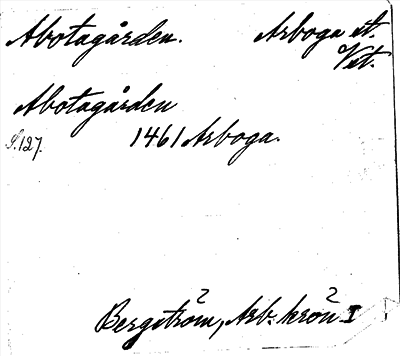 Abotagården. Arboga st.
Vst.
Abotagården
S. 127. 1461 Arboga.
Bergström, Arb. krön I